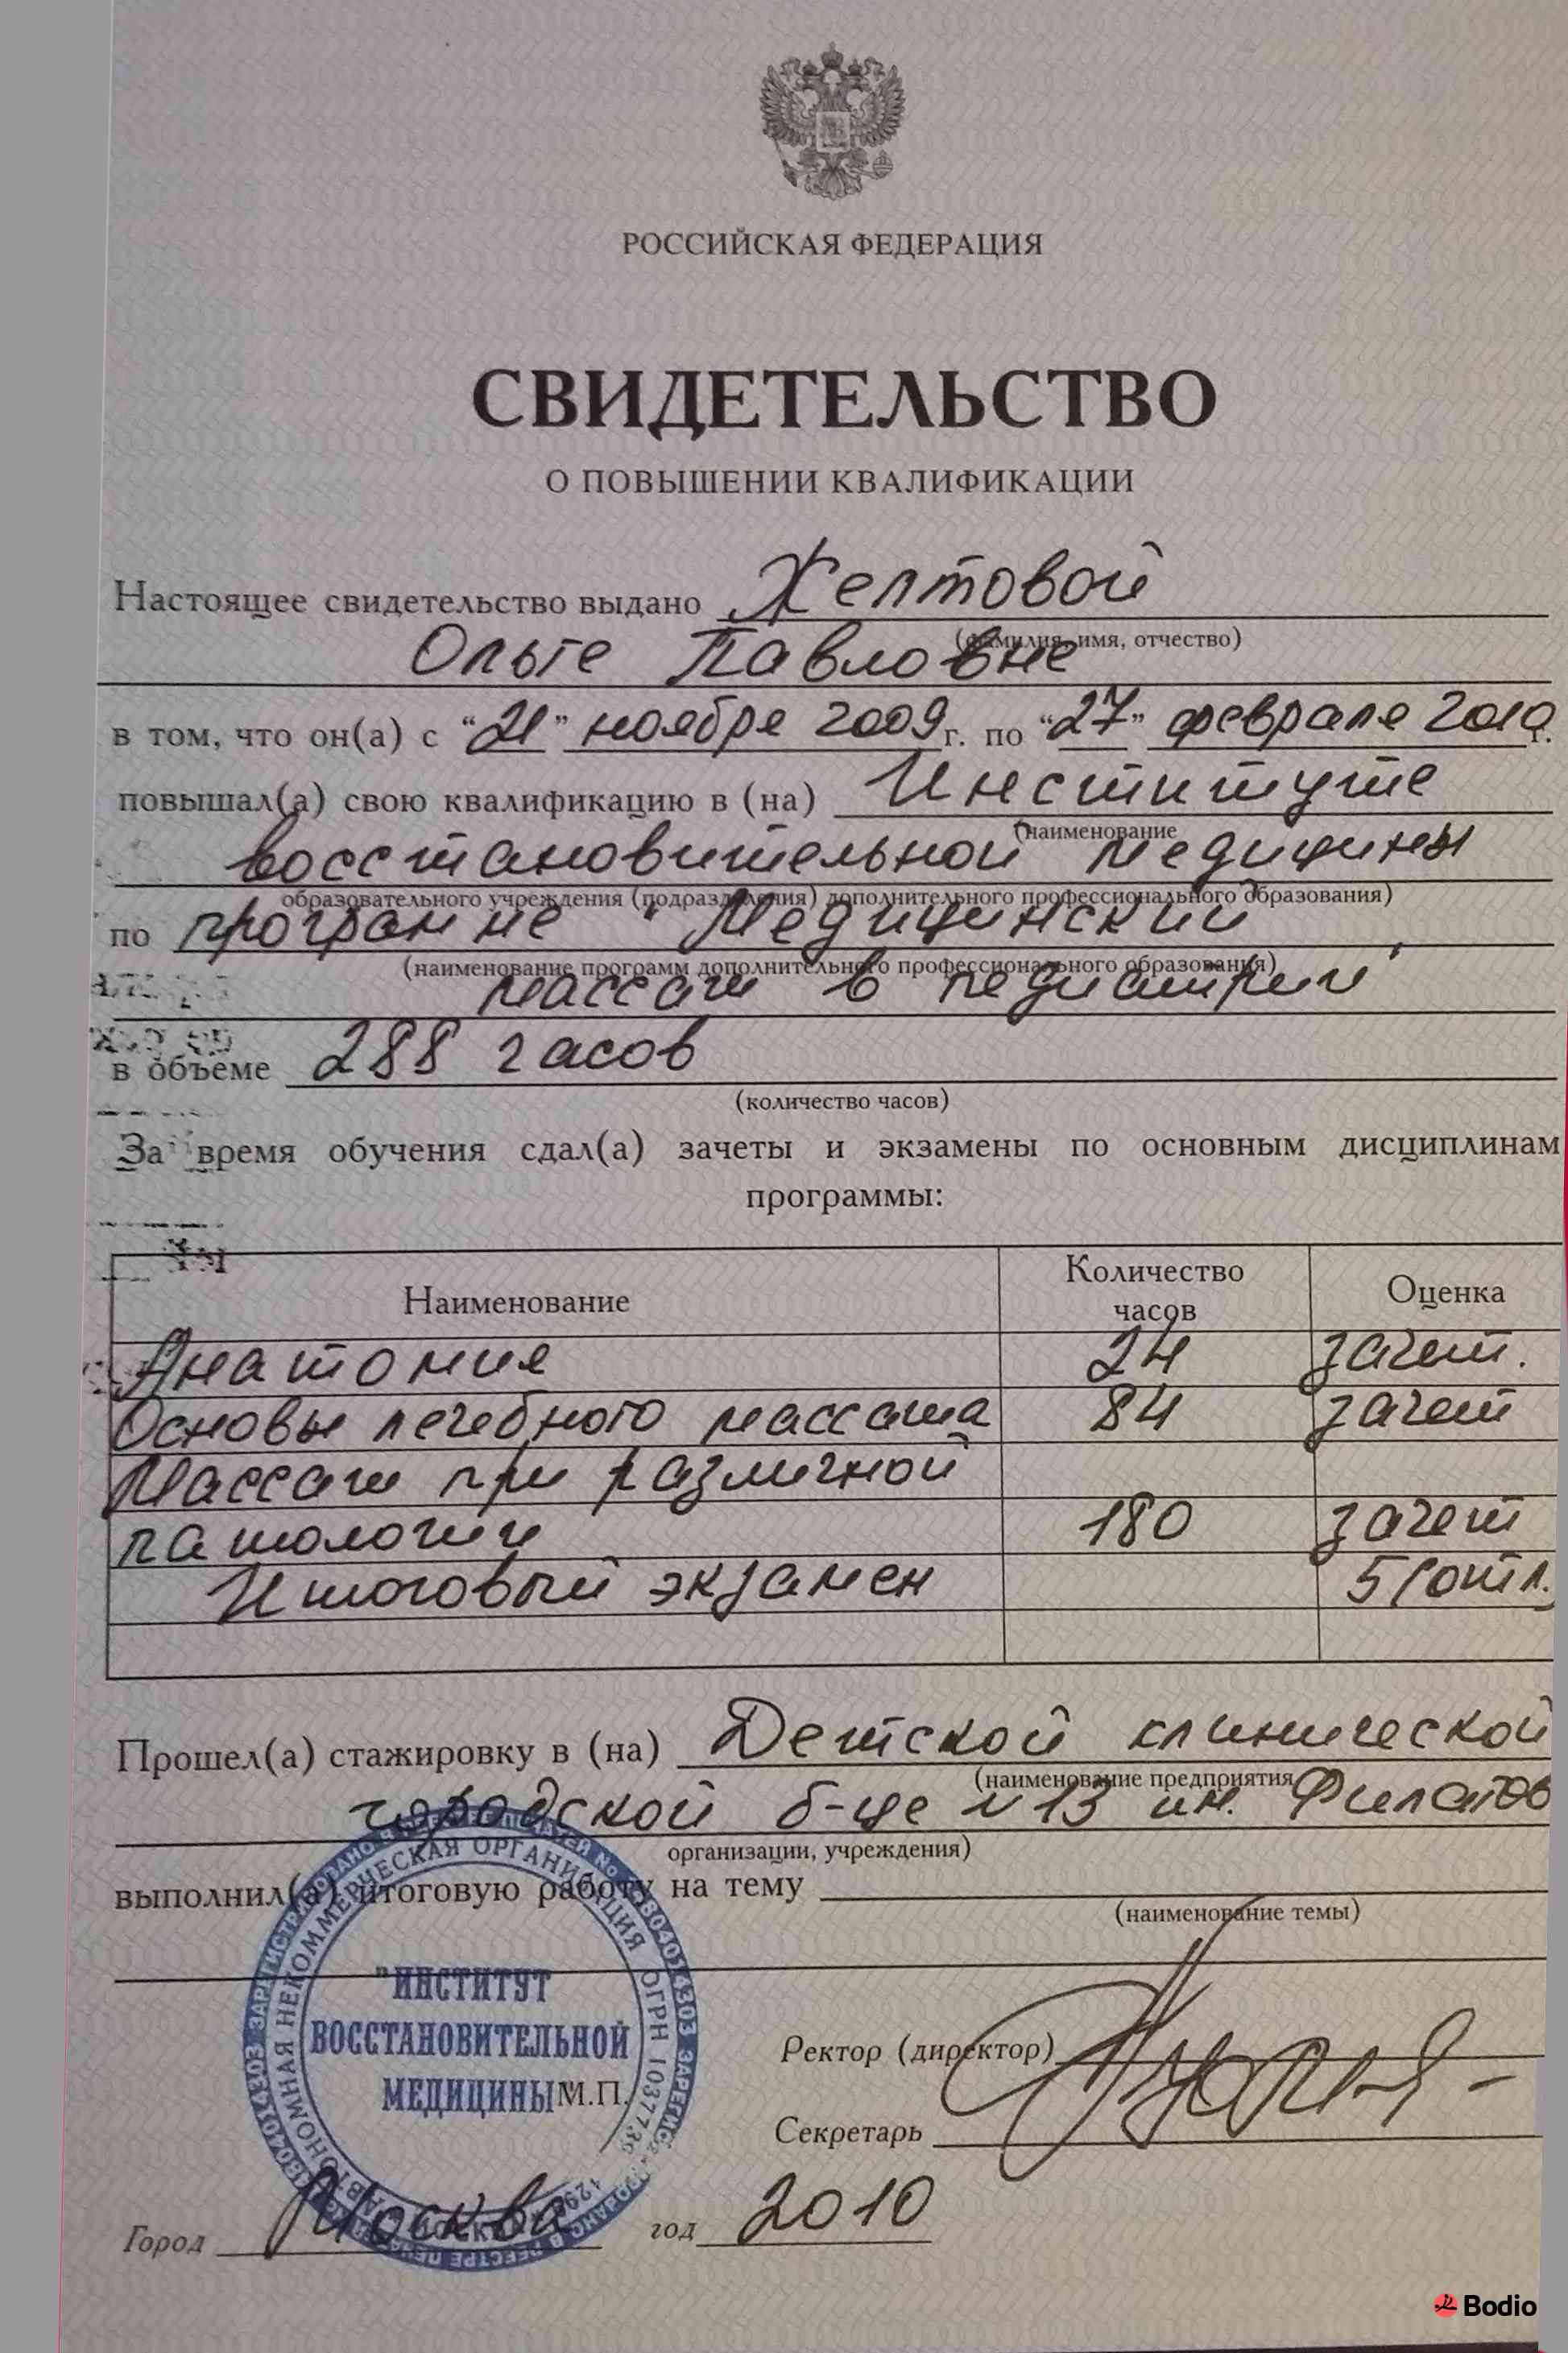 РОССИЙСКАЯ ФЕДЕРАЦИЯ
СВИДЕТЕЛЬСТВО
О ПОВЫШЕНИИ КВАЛИФИКАЦИИ
Настоящее свидетельство выдано Желтовой
(фамилия, имя, отчество)
Ольге Павловне
в том, что он(а) с "21" ноября 2009 г. по "27" февраля 2010 г.
повышал(а) свою квалификацию в (на) Институте
(наименование
восстановительной медицины
образовательного учреждения (подразделения) дополнительного профессионального образования)
по программе "Медицинский
(наименование программ дополнительного профессионального образования)
массаж в педиатрии"
в объеме 288 часов
(количество часов)
За время обучения сдал(а) зачеты и экзамены по основным дисциплинам
программы:
Наименование Количество часов Оценка
Анатомия 24 зачет.
Основы лечебного массажа 84 зачет
Массаж при различной
патологии 180 зачет
Итоговый экзамен 5 (отл.)
Прошел(а) стажировку в (на) Детской клинической
(наименование предприятия,
городской б-це №13 им. Филатов
организации, учреждения)
выполнил(а) итоговую работу на тему
(наименование темы)
"ИНСТИТУТ
ВОССТАНОВИТЕЛЬНОЙ
МЕДИЦИНЫ"
М.П.
АВТОНОМНАЯ НЕКОММЕРЧЕСКАЯ ОРГАНИЗАЦИЯ ОГРН
Ректор (директор)
Секретарь
Город Москва год 2010
Bodio